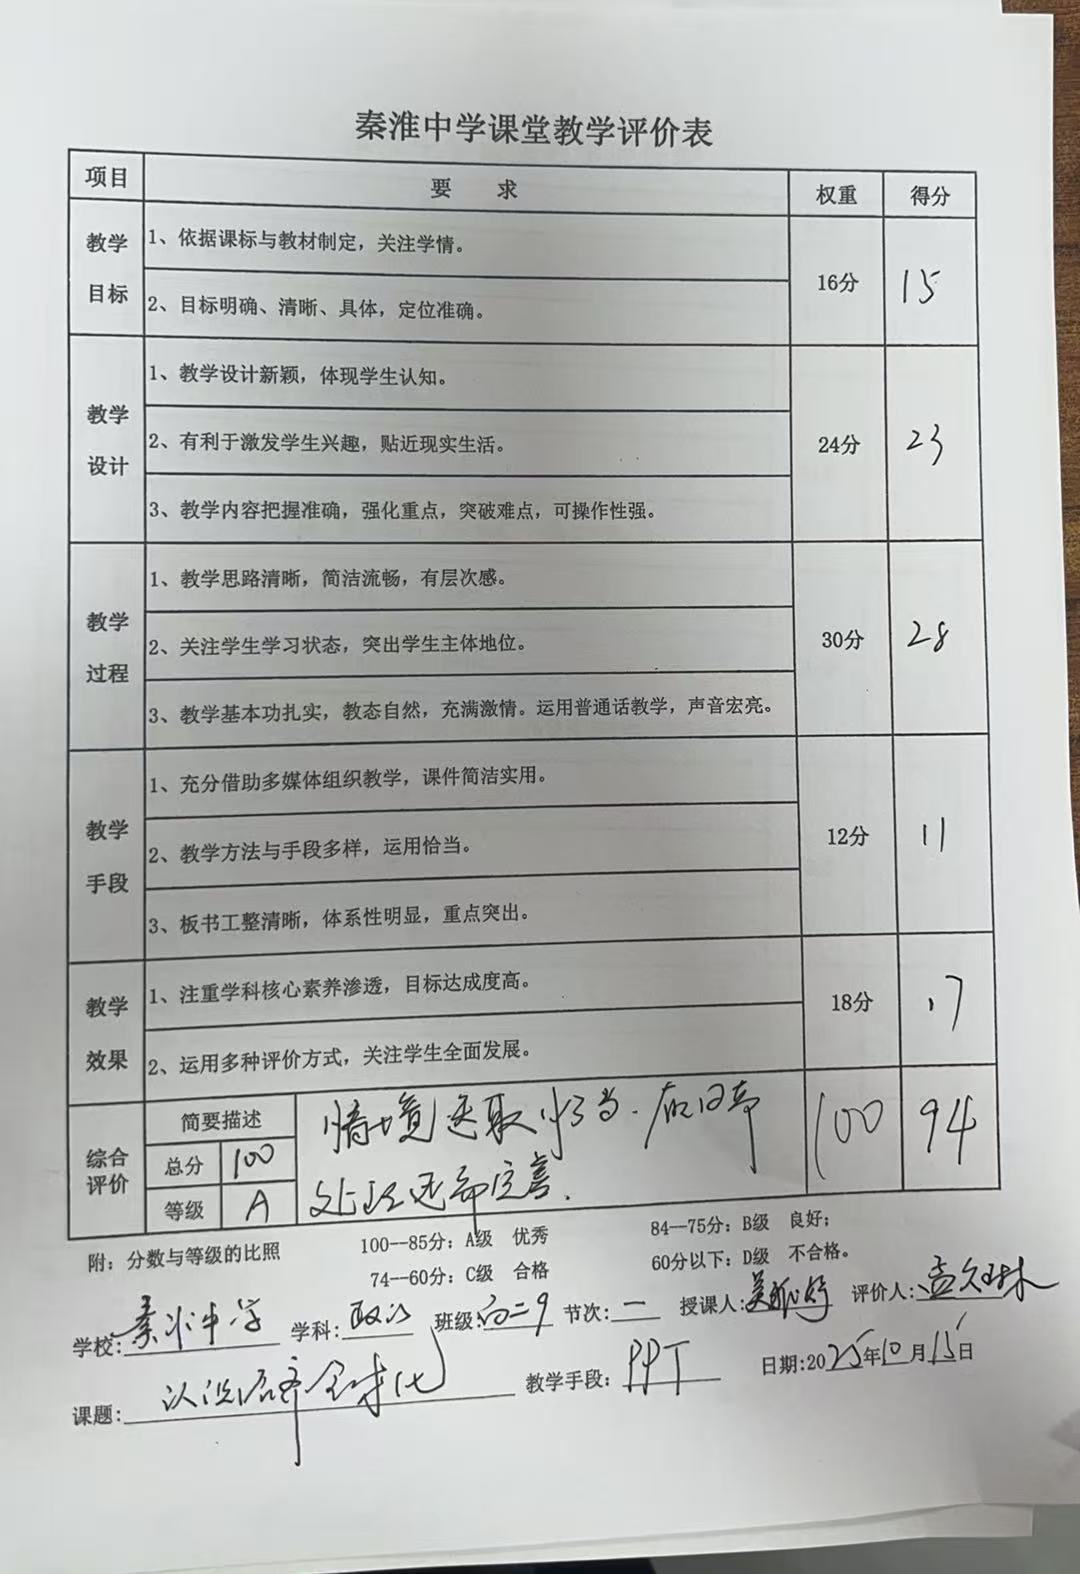 秦淮中学课堂教学评价表
项目 要 求 权重 得分
教学目标 1、依据课标与教材制定，关注学情。 16分 15
2、目标明确、清晰、具体，定位准确。
教学设计 1、教学设计新颖，体现学生认知。 24分 23
2、有利于激发学生兴趣，贴近现实生活。
3、教学内容把握准确，强化重点，突破难点，可操作性强。
教学过程 1、教学思路清晰，简洁流畅，有层次感。 30分 28
2、关注学生学习状态，突出学生主体地位。
3、教学基本功扎实，教态自然，充满激情。运用普通话教学，声音宏亮。
教学手段 1、充分借助多媒体组织教学，课件简洁实用。 12分 11
2、教学方法与手段多样，运用恰当。
3、板书工整清晰，体系性明显，重点突出。
教学效果 1、注重学科核心素养渗透，目标达成度高。 18分 17
2、运用多种评价方式，关注学生全面发展。
综合评价 简要描述 情境选取恰当. 100 94
总分 100
等级 A 处理还需完善.
附：分数与等级的比照 100--85分：A级 优秀 84--75分：B级 良好；
74--60分：C级 合格 60分以下：D级 不合格。
学校:秦淮中学 学科:政治 班级:高二9 节次:一 授课人:吴 评价人:孟
课题:认识经济全球化 教学手段:PPT 日期:2025年10月15日